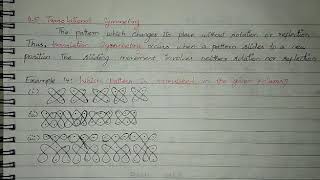 9.5 Translational Symmetry
The pattern which changes its place without rotation or reflection
Thus, translation symmetry occurs when a pattern slides to a new
position. The sliding movement involves neither rotation nor reflection.
Example 4: Which pattern is translated in the given columns?
(i)
(ii)
(iii)